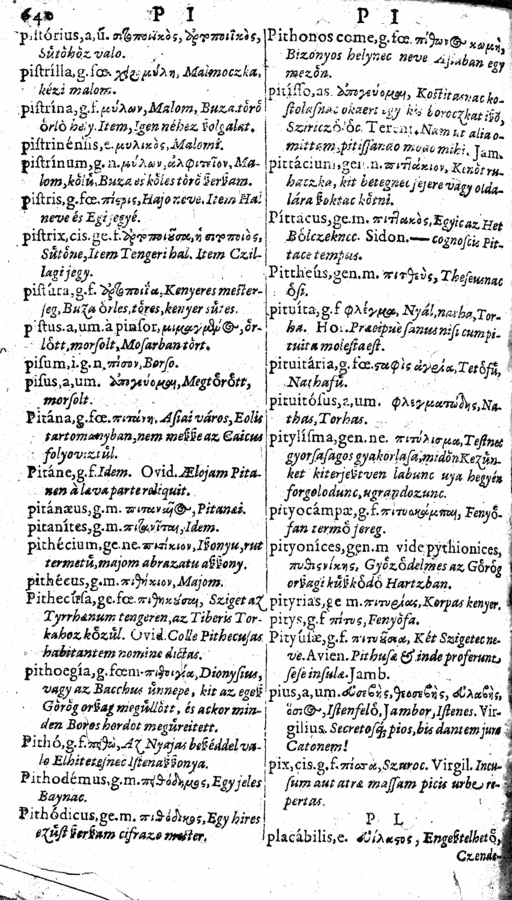 640 P I P I
pistórius,a,ũ. σιτοποιϊκὸς, ἀρτοποιϊκὸς,
Sůtöhöz valo.
pistrilla,g.fœ χειρομύλη, Malmoczka,
kézi malom.
pistrína,g.f. μύλων, Malom, Buza törö
örlö hely. Item, Igen nehez ßolgalat.
pistrinénsis,e. μυλικὸς, Malomi.
pistrínum, g. n. μύλων, ἀλφιτεῖον, Ma-
lom, kölů. Buza es köles törö ßerßam.
pistris,g.fœ. πίστρις, Hajo neve. Item Hal
neve és Egi jegyé.
pistrix,cis.ge.f. ἀρτοποιοῦσα, ἡ σιτοποιὸς,
Sůtöne, Item Tengeri hal. Item Czil-
lagi jegy.
pistúra,g.f. ἀρτοποιΐα, Kenyeres mester-
seg, Buza örles, töres, kenyer sůtes.
pistus.a,um.à pinsor, ör-
lött, morsolt, Mosarban tört.
pisum,i.g.n. πίσον, Borso.
pisus,a,um. Megtörött,
morsolt.
Pitána,g.fœ. πιτάνη. Asiai város, Eolis
tartomanyban, nem meßße az Caicus
folyoviztůl.
Pitáne,g.f. Idem. Ovid. Ælojam Pita-
nen à læva parte reliquit.
pitánæus,g.m. πιταναῖος, Pitanai.
pitanítes,g.m. πιτανίτης, Idem.
pithécium,ge.ne. πιθήκιον, Ißonyu, rut
termetů, majom abrazatu aßßony.
pithécus,g.m. πιθήκιον, Majom.
Pithecúsa,ge.fœ. πιθηκοῦσαι, Sziget az
Tyrrhenum tengeren, az Tiberis Tor-
kahoz közůl. Ovid. Colle Pithecusas
habitantem nomine dictas.
pithoegía,g.fœm. πιθοιγία, Dionysius,
vagy az Bacchus ůnnepe, kit az egeß
Görög orßag megůllött, és ackor min-
den Boros hordot megůreitett.
Pithó,g.f. πειθὼ, Az Nyajas beßéddel va-
lo Elhitetesnec Istenaßßonya.
Pithodémus,g.m. πιθόδημος, Egy jeles
Baynac.
Pithódicus,ge.m. πιθόδικος, Egy hires
ezůst ßerßam cifrazo mester.
Pithonos come,g.fœ. πίθωνος κωμὴ,
Bizonyos helynec neve Asiaban egy
mezön.
pitisso,as. ἀπογεύομαι, Kostitasnac ko-
stolasnac okaert egy kis boroczkat ißo,
Szirtczölöc. Terent. Nam ut alia o-
mittam, pitissando modo mihi. Jam.
pittácium,gen.n. πιττάκιον, Kinötru-
haczka, kit betegnec fejere vagy olda-
lára ßoktac kötni.
Pittacus,ge.m. πιττακὸς, Egyic az Het
Bölczeknec. Sidon.— cognoscis Pit-
tace tempus.
Pittheús,gen.m. πιτθεὺς, Theseusnac
ösi.
pituíta,g.f φλέγμα, Nyál, natha, Tor-
ha. Hor. Præcipuè sanus nisi cum pi-
tuita molesta est.
pituitária,g.fœ. σταφὶς ἀγρία, Tetöfů,
Nathafů.
pituitósus,a,um. φλεγματώδης, Na-
thas, Torhas.
pitylísma,gen.ne. πιτύλισμα, Testnec
gyorsasagos gyakorlasa, midön Kezůn-
ket kiterjeßtven labunc uya hegyén
forgolodunc, ugrandozunc.
pityocámpæ,g.f. πιτυοκάμπαι, Fenyö-
fan termö jereg.
pityoníces,gen.m vide pythionices,
πυθιονίκης, Gyözödelmes az Görög
orßagi kůßködö Hartzban.
pityrias,ge m. πιτυρίας, Korpas kenyer.
pitys,g.f πίτυς, Fenyöfa.
Pityúsæ,g.f. πιτυοῦσαι, Két Szigetec ne-
ve. Avien. Pithusæ & inde proferunt
sese insulæ. Jamb.
pius,a,um. εὐσεβὴς, θεοσεβὴς, εὐλαβὴς,
ὅσιος, Istenfelö, Jambor, Istenes. Vir-
gilius. Secretosq; pios, bis dantem jura
Catonem!
pix,cis,g.f. πίσσα, Szuroc. Virgil. Incu-
sum aut atræ massam picis urbe re-
pertas.
P L
placábilis,e. εὐΐλατος, Engeßtelhetö,
Czende-